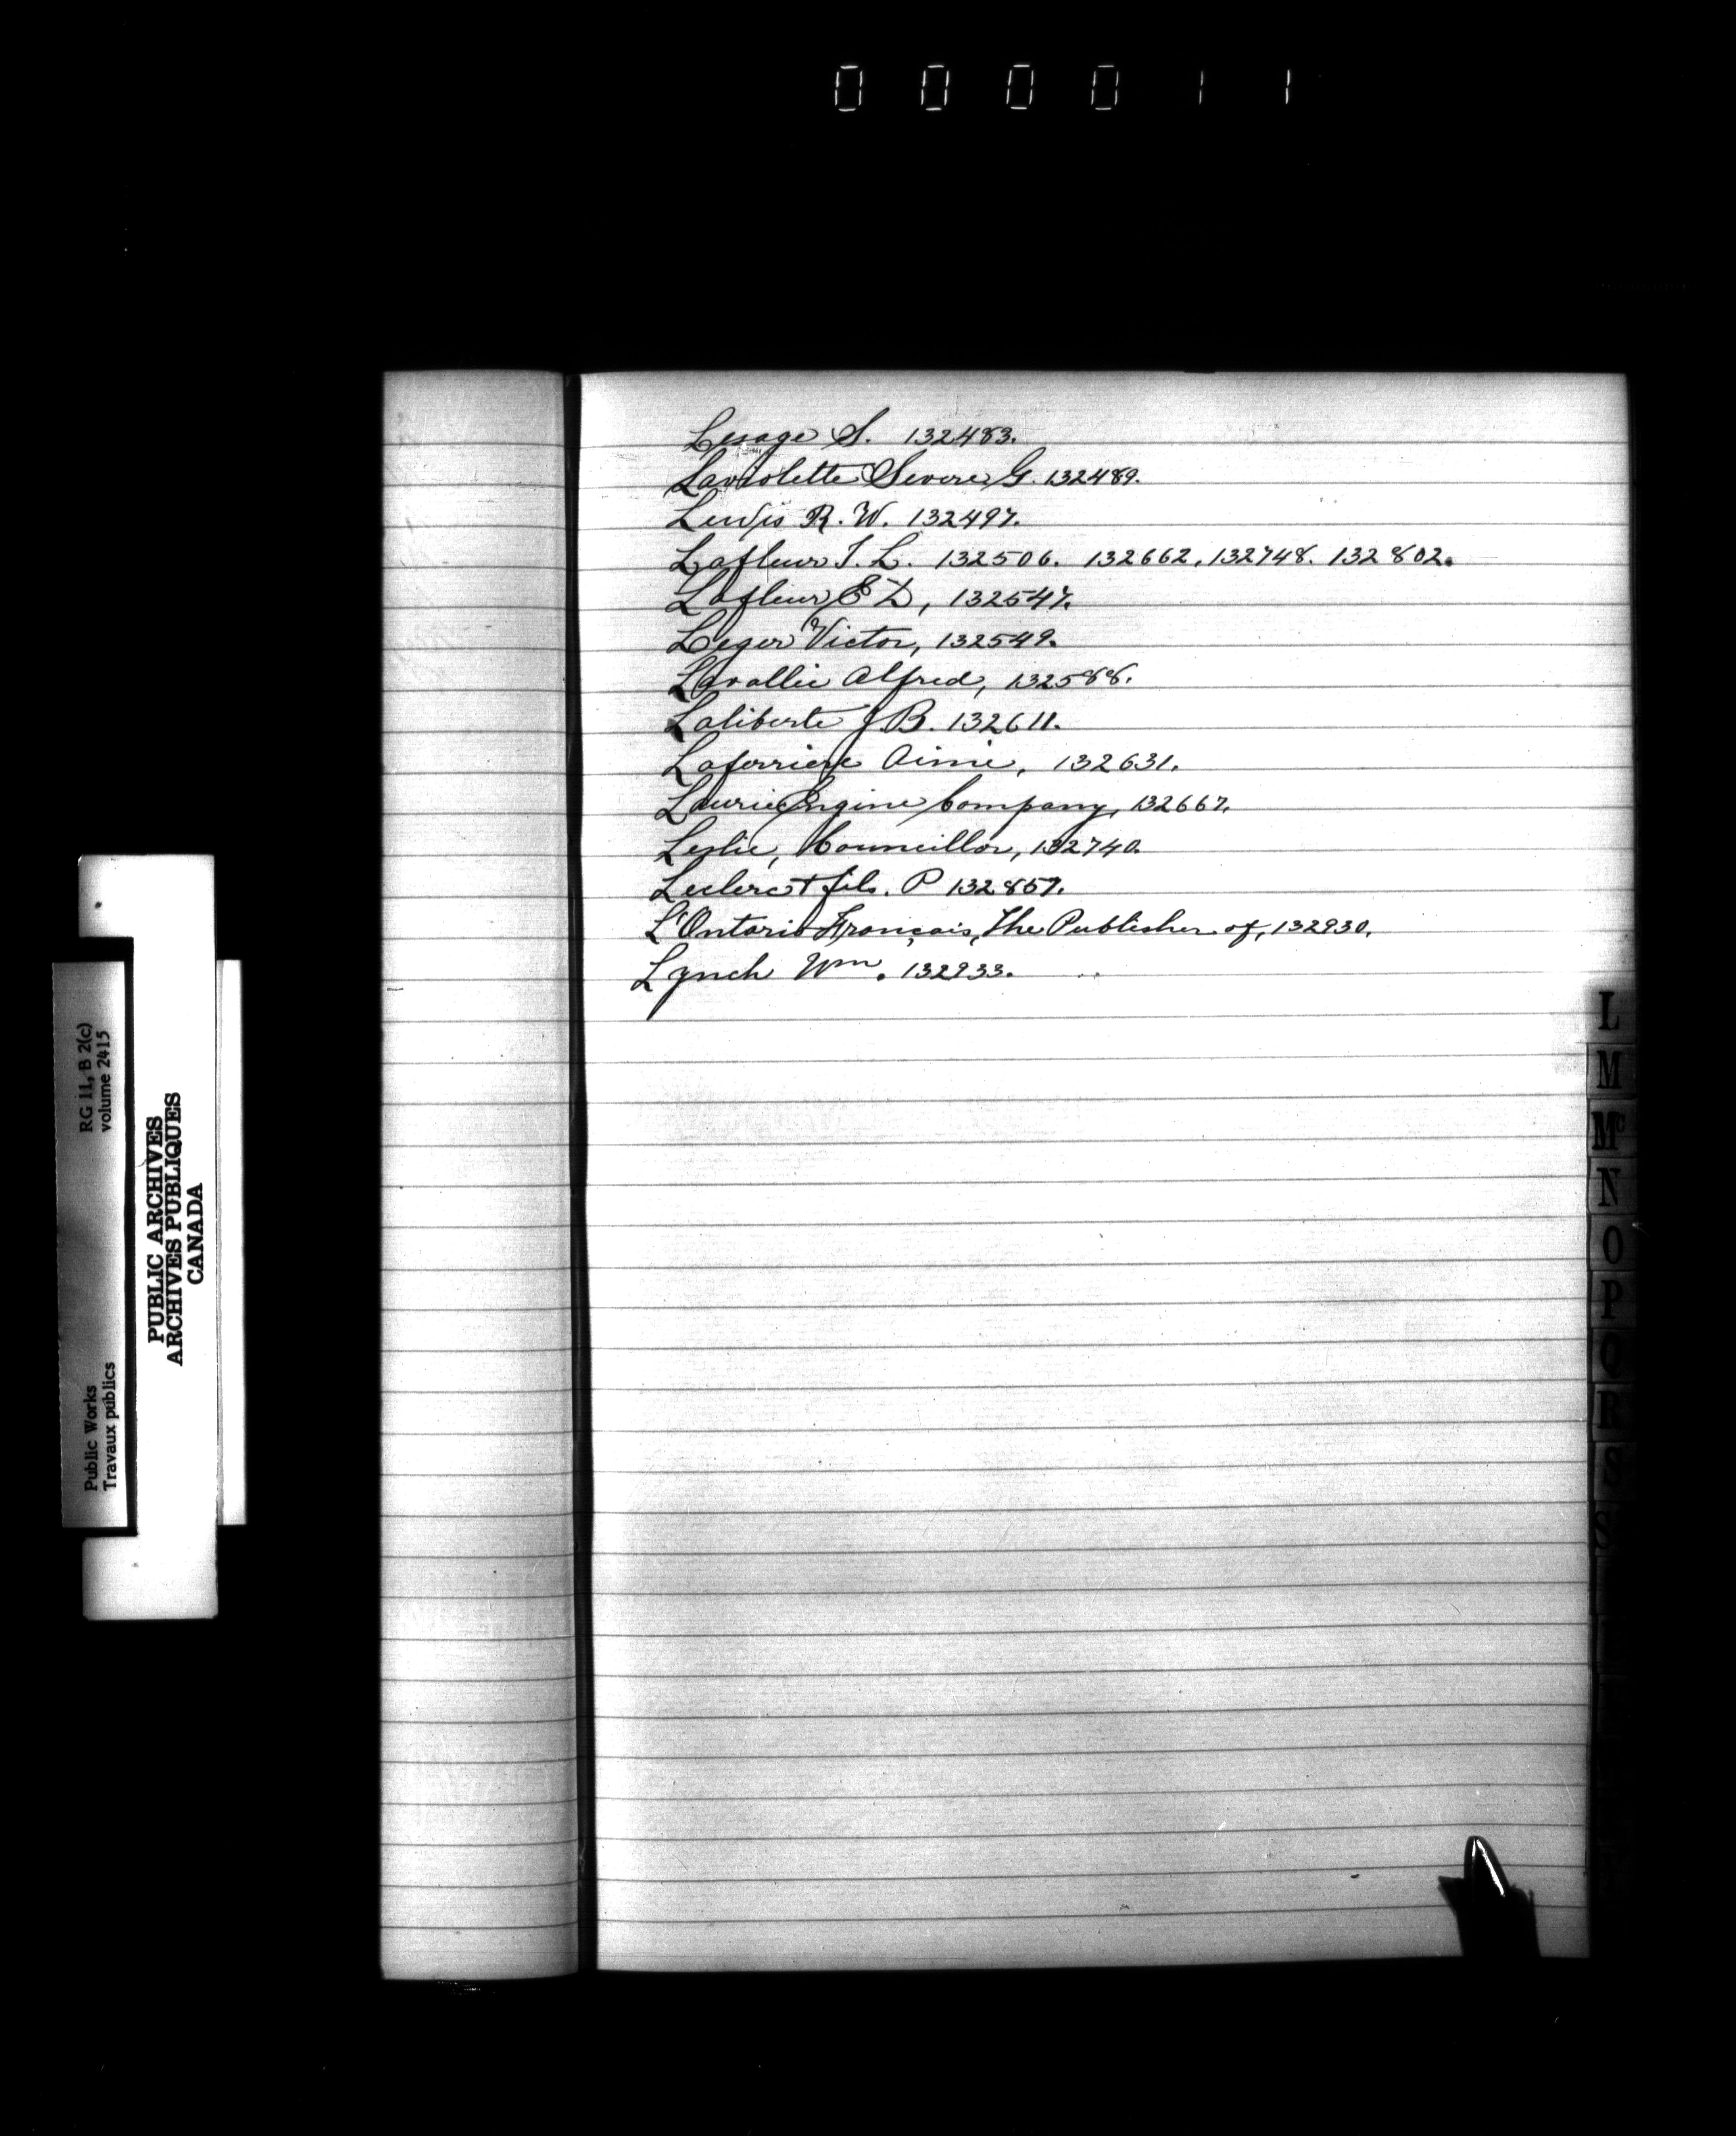 0 0 0 0 1 1
Lesage S. 132483.
Laviolette Severe G. 132489.
Lewis R. W. 132497.
Lafleur T. L. 132506. 132662, 132748. 132802.
Lafleur E D, 132547.
Leger Victor, 132549.
Lavallie Alfred, 132588.
Laliberte J B. 132611.
Laferriere Aimé, 132631.
Laurie Engine Company, 132667.
Leslie, Councillor, 132740.
Leclerc & fils. P 132857.
L'Ontario Français, The Publisher of, 132930.
Lynch Wm. 132933.
L
M
Mc
N
O
P
Q
R
S
Public Works
Travaux publics
RG 11, B 2(c)
volume 2415
PUBLIC ARCHIVES
ARCHIVES PUBLIQUES
CANADA